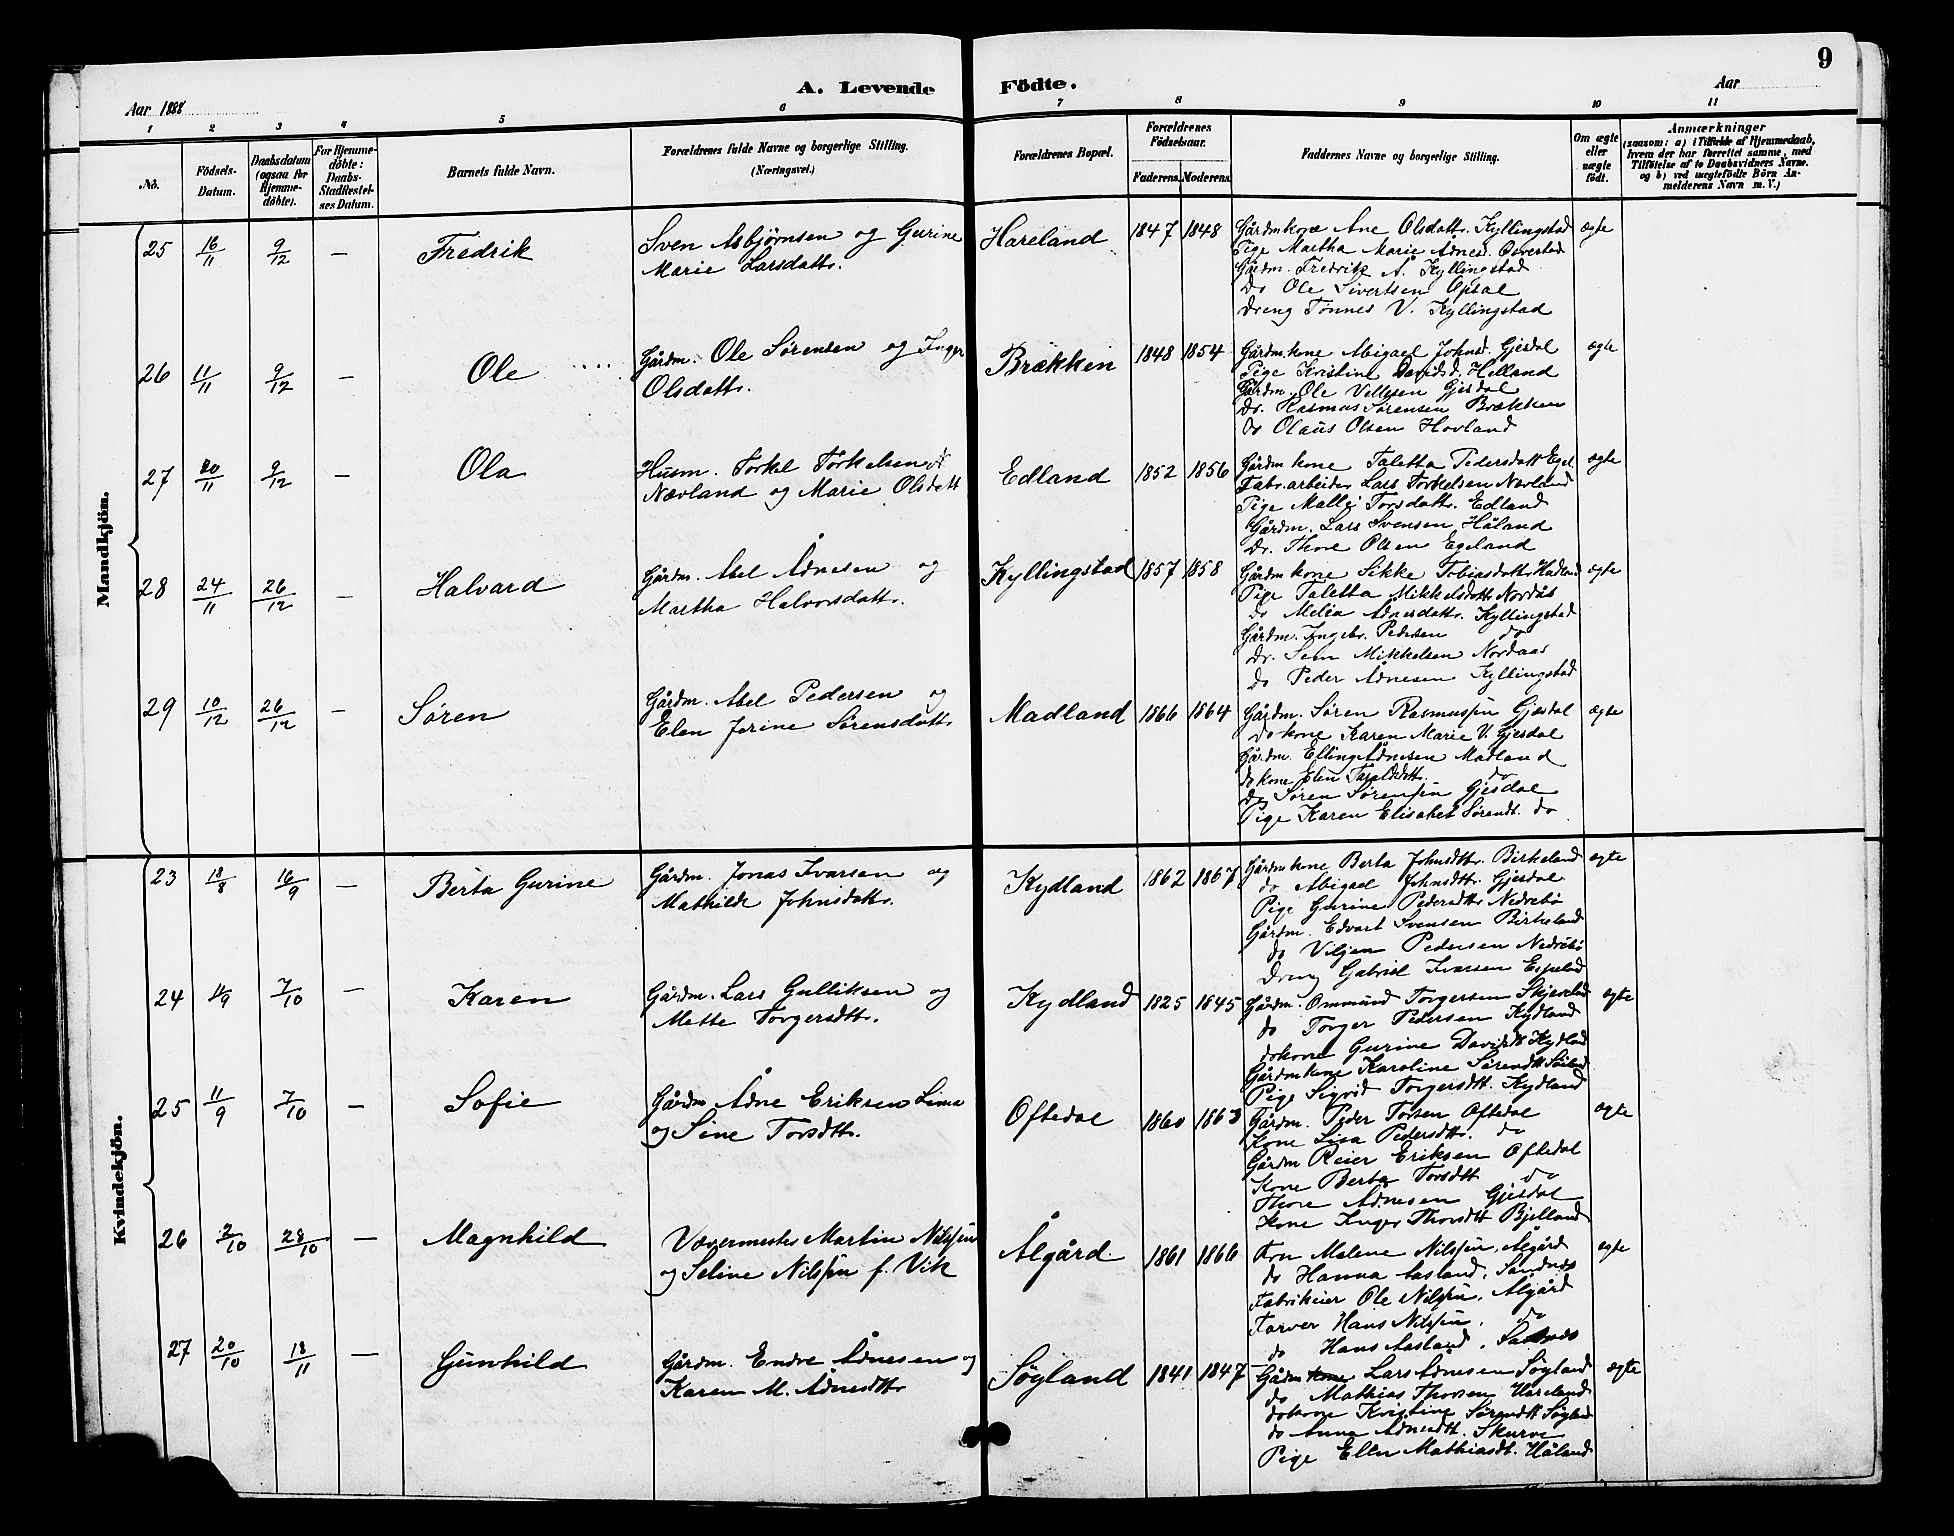 9
A. Levende Födte.
Aar 1888
Aar
1 2 3 4 5 6 7 8 9 10 11
No.
Födsels-Datum.
Daabsdatum (ogsaa for Hjemmedöbte).
For Hjemmedöbte: Daabs-Stadfestelses Datum.
Barnets fulde Navn.
Forældrenes fulde Navne og borgerlige Stilling. (Næringsvei.)
Forældrenes Bopæl.
Forældrenes Födselsaar.
Faderens. Moderens.
Faddernes Navne og borgerlige Stilling.
Om ægte eller uægte födt.
Anmærkninger
(saasom: a) i Tilfælde af Hjemmedaab, hvem der har forrettet samme, med Tilföielse af to Daabsvidners Navne, og b) ved uægtefödte Börn Anmelderens Navn m. V.)
Mandkjön.
25 16/11 9/12 — Fredrik
Sven Asbjørnsen og Gurine
Marie Larsdattr.
Hareland 1847 1848
Gårdmkone Ane Olsdattr. Kyllingstad
Pige Martha Marie Adnesd.
Gårdm. Fredrik A. Kyllingstad
do Ole Sivertsen Opsal
Dreng Tønnes V. Kyllingstad
ægte
26 11/11 9/12 — Ole
Gårdm. Ole Sørensen og Inger
Olsdattr.
Brækken 1848 1854
Gårdm.kone Abigael Johnsd. Gjesdal
Pige Kristine Davidsd. Helland
Gårdm. Ole Villesen Gjesdal
do. Rasmus Sørensen Brækken
do Olaus Olsen Hovland
ægte
27 20/11 9/12 — Ola
Husm. Torkel Torkelsen
Nævland og Marie Olsdatt
Edland 1852 1856
Gårdmkone Taletta Pedersdatt Egel.
Fabr.arbeider Lars Torkelsen Nævland
Pige Malli Torsdattr. Edland
Gårdm. Lars Svensen Håland
do. Thore Olsen Egeland
ægte
28 24/11 26/12 — Halvard
Gårdm. Abel Ådnesen og
Martha Halvorsdattr.
Kyllingstad 1857 1858
Gårdmkone Sikke Tobiasdattr Hadland
Pige Taletta Mikkelsdatt Nordås
do Melia Adnesdattr. Kyllingstad
Gårdm. Ingebr. Pedersen do
do. Sem Mikkelsen Nordaas
do Peder Ådnesen Kyllingstad
ægte
29 10/12 26/12 — Søren
Gårdm. Abel Pedersen og
Elen Jorine Sørensdattr.
Madland 1866 1864
Gårdm. Søren Rasmussen Gjesdal
do kone Karen Marie V. Gjesdal
Gårdm. Elling Ådnesen Madland
do kone Elen Taraldsdtt. do
do Søren Sørensen Gjesdal
Pige Karen Elisabet Sørendt. do
ægte
Kvindekjön.
23 18/8 16/9 — Berta Gurine
Gårdm. Jonas Ivarsen og
Mathilde Johnsdattr.
Kydland 1862 1867
Gårdmkone Berta Johnsdtt. Birkeland
do Abigael Johnsdtt. Gjesdal
Pige Gurine Pedersdtt. Nedrebø
Gårdm. Edvart Svensen Birkeland
do Viljen Pedersen Nedrebø
Dreng Gabriel Ivarsen Espeland
ægte
24 1/9 7/10 — Karen
Gårdm. Lars Gulliksen og
Mette Torgersdtt.
Kydland 1825 1845
Gårdm. Ommund Torgersen Skjæveland
do Torger Pedersen Kydland
do kone Gurine Davidsdtt Kydland
Gårdmkone Karoline Sørendtt
Pige Sigrid Torgersdtt. Kydland
ægte
25 11/9 7/10 — Sofie
Gårdm Ådne Eriksen Lima
og Sine Torsdtt.
Oftedal 1860 1863
Gårdm. Peder Torsen Oftedal
Kone Lisa Pedersdtt. do
Gårdm Reier Eriksen Oftedal
Kone Berta Torsdtt do
Thore Adnesen Gjesdal
Kone Inger Thorsdtt Bjelland
ægte
26 2/10 28/10 — Magnhild
Vævermester Martin Nilssen
og Seline Nilssen f. Vik
Ålgård. 1861 1866
Fru Malene Nilssen, Ålgård
do Hanna Aasland, Sandnes
Fabrikeier Ole Nilssen, Ålgård
Farver Hans Nilssen, do
do Hans Aasland, Sandnes
ægte
27 20/10 18/11 — Gunhild
Gårdm. Endre Ådnesen og
Karen M. Ådnesdtt.
Søyland 1841 1847
Gårdm Lars Adnesen Søyland
do Mathias Thorsen Håland
do kone Kristine Sørendtt Søyland
do Anna Adnesdtt. Skurve
Pige Ellen Mathiasdt. Håland
ægte